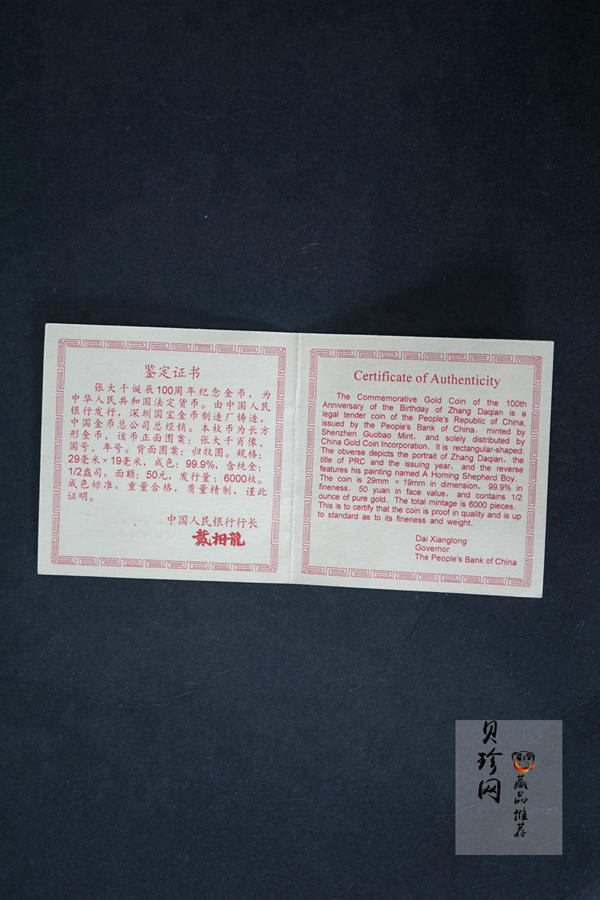 鉴定证书
张大千诞辰100周年纪念金币，为
中华人民共和国法定货币。由中国人民
银行发行，深圳国宝金币制造厂铸造，
中国金币总公司总经销。本枚币为长方
形金币，该币正面图案：张大千肖像，
国号、年号。背面图案：归牧图。规格：
29毫米×19毫米，成色：99.9%，含纯金：
1/2盎司，面额：50元，发行量：6000枚。
成色标准，重量合格，质量精制，谨此
证明。
中国人民银行行长
戴相龍
Certificate of Authenticity
The Commemorative Gold Coin of the 100th
Anniversary of the Birthday of Zhang Daqian is a
legal tender coin of the People's Republic of China,
issued by the People's Bank of China, minted by
Shenzhen Guobao Mint, and solely distributed by
China Gold Coin Incorporation. It is rectangular-shaped.
The obverse depicts the portrait of Zhang Daqian, the
title of PRC and the issuing year, and the reverse
features his painting named A Homing Shepherd Boy.
The coin is 29mm × 19mm in dimension, 99.9% in
fineness, 50 yuan in face value, and contains 1/2
ounce of pure gold. The total mintage is 6000 pieces.
This is to certify that the coin is proof in quality and is up
to standard as to its fineness and weight.
Dai Xianglong
Governor
The People's Bank of China
贝珍网
藏品推荐